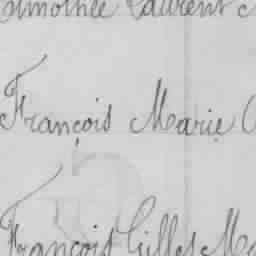 Timothée Laurent
François Marie
François Gilles Ma